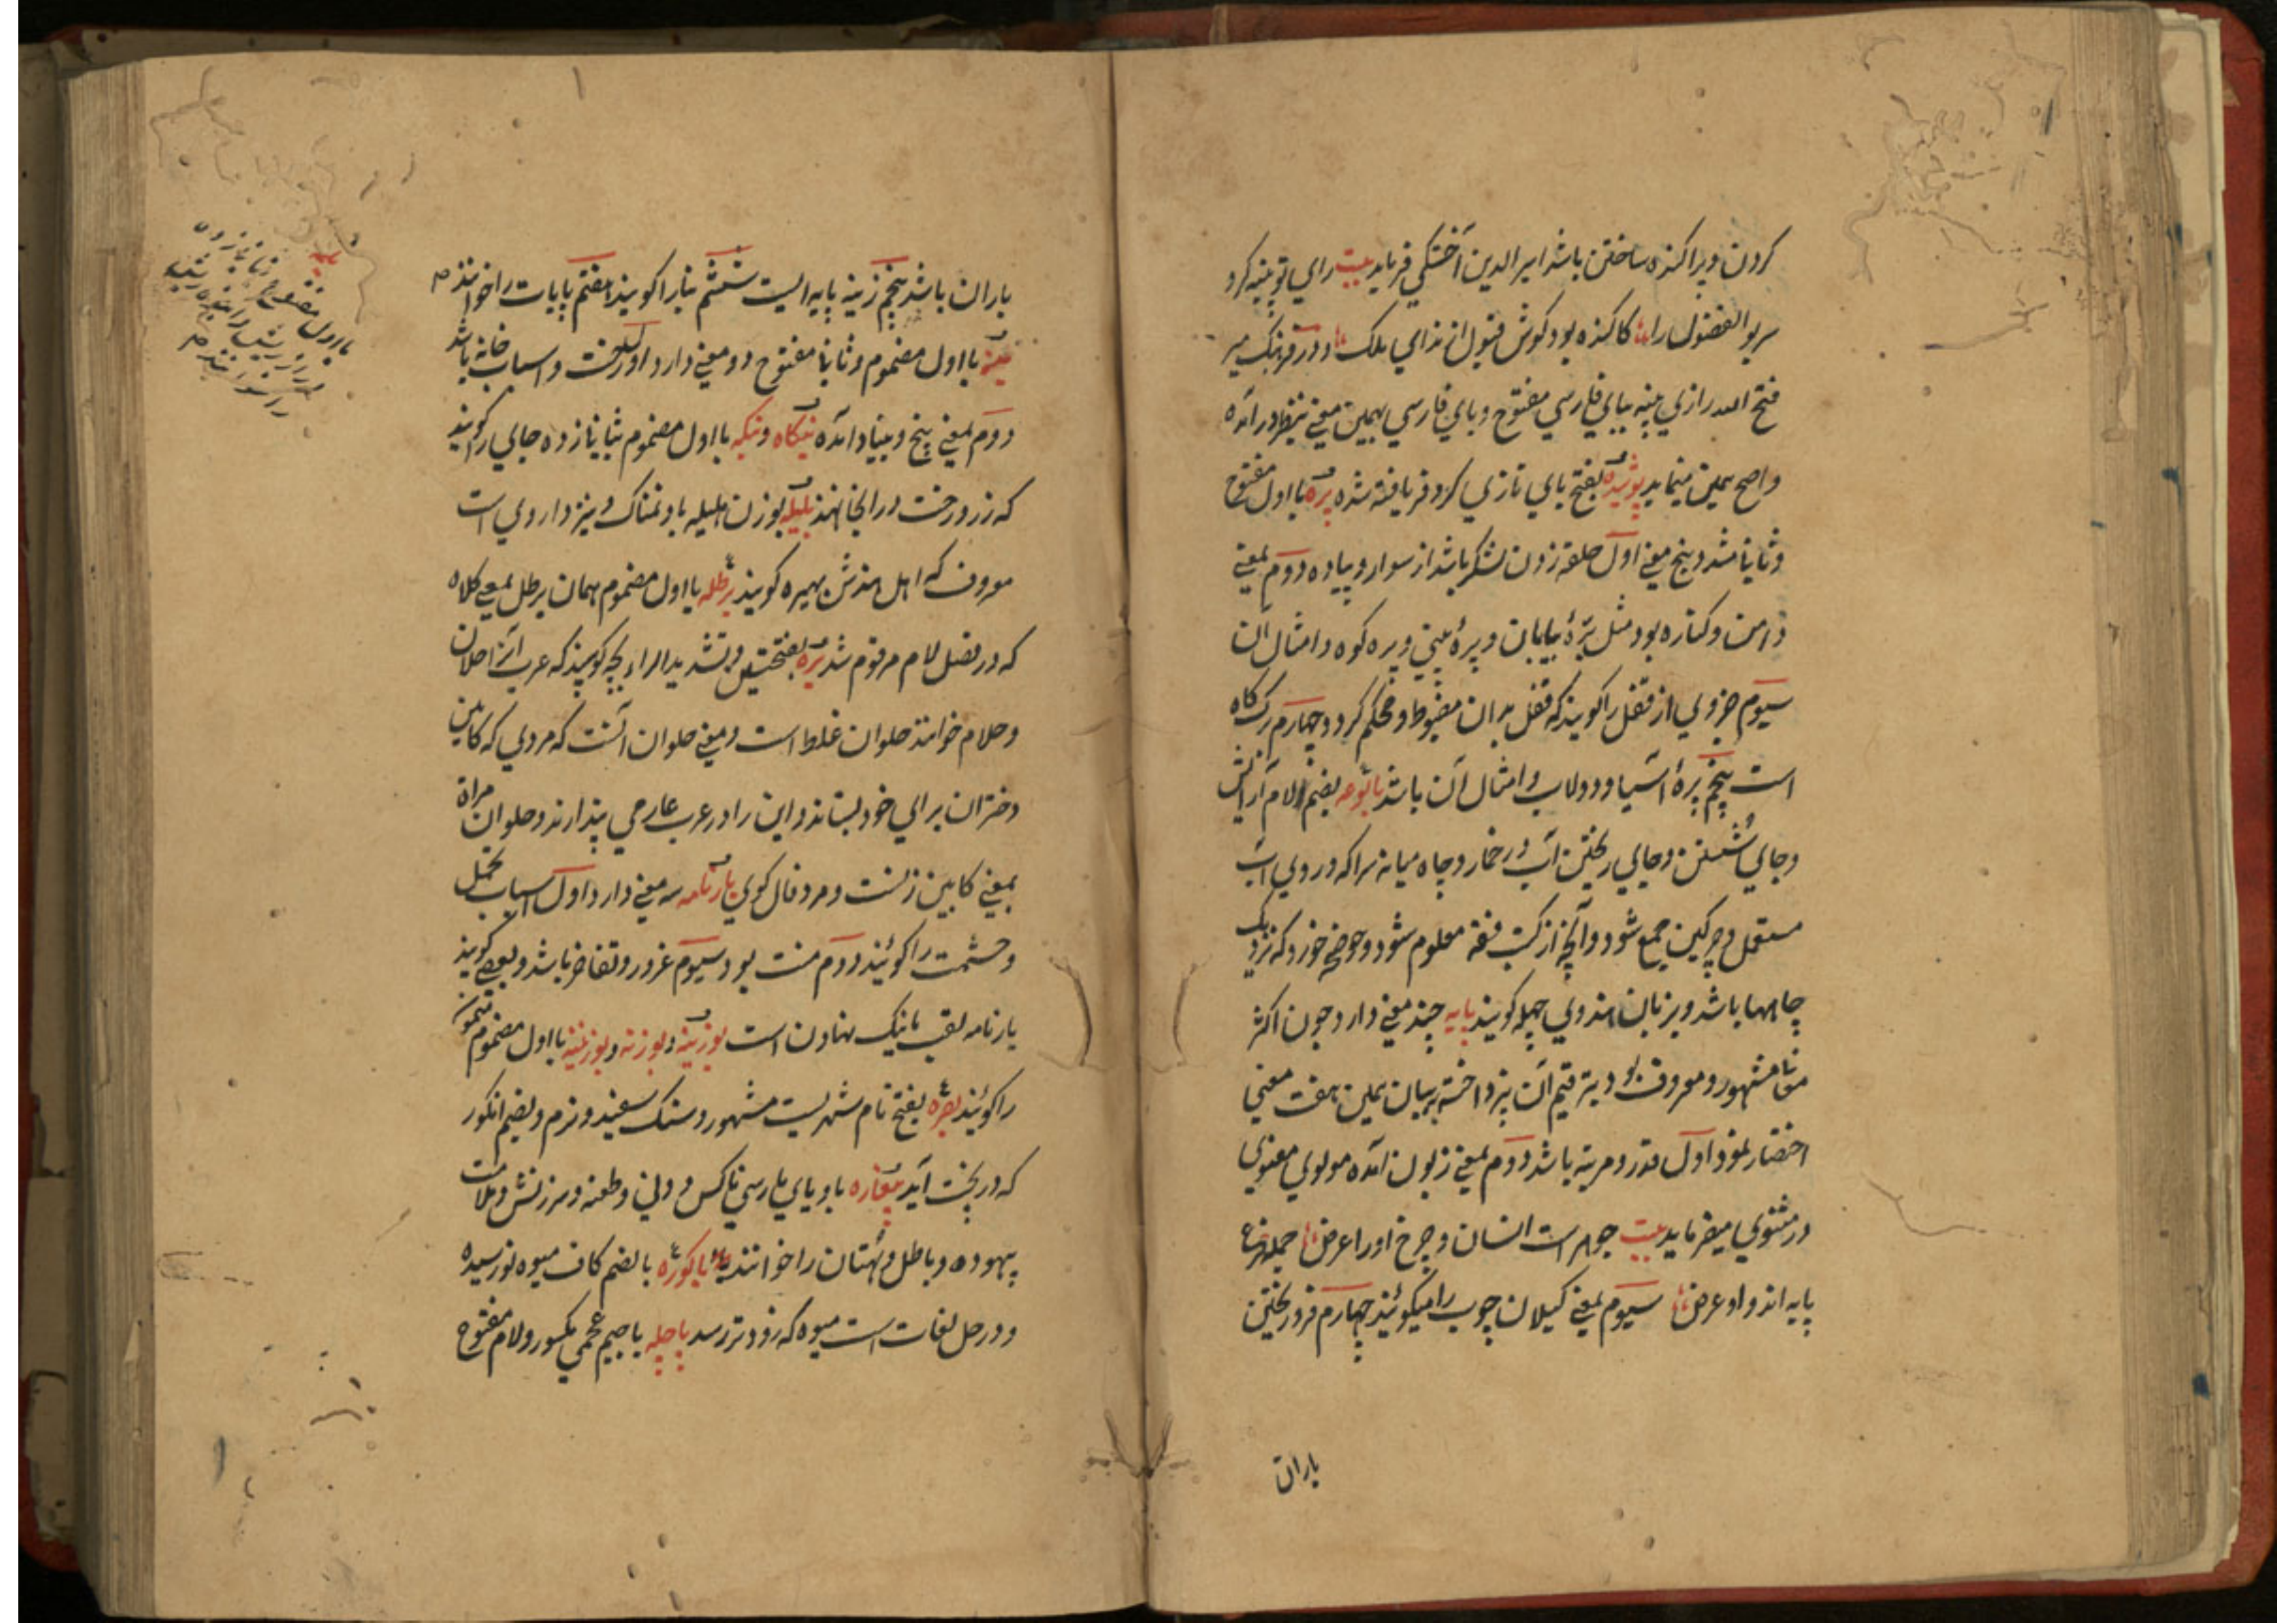 کردن و پراکنده ساختن باشد امیرالدین آخستکی فرماید بیت رای تو پنبه کرد
سر بوالفضول را کاکنده بود کوش قبول از ندای ملک و در فرهنک میر
فتح الله رازی پنبه ببای فارسی مفتوح و بای فارسی بهمین معنی بنظر در آمده
واصح همین مینماید پوشیده بفتح بای تازی کرد فر یافته شده پره با اول مفتوح
و ثانیا مشدد پنج معنی اول حلقه زدن لشکر باشد از سوار و پیاده دوم بمعنی
دامن و کناره بود مثل پرهٔ بیابان و پرهٔ بینی و پره کوه و امثال آن
سیوم جزوی از قفل را کویند که قفل بدان مضبوط و محکم کردد چهارم برک کاه
است پنجم پرهٔ آسیا و دولاب و امثال آن باشد بالوعه بضم لام
و جای شستن و جای ریختن آب در خمار و چاه میانه سرا که در وی آب
مستعمل و چرکین جمع شود و آنچه از کتب فقه معلوم شود و حوضچه خورد که نزدیک
چاهها باشد و بزبان هندوی چهله کویند پایه چند معنی دارد چون اکثر
معانی مشهور و معروف بود بترقیم آن نپرداخته به بیان همین هفت معنی
اختصار نمود اول قدر و مرتبه باشد دوم بمعنی زبون آمده مولوی معنوی
در مثنوی میفرماید بیت جوهر است انسان و چرخ او را عرض جمله فرع
پایه اند و او عرض سیوم بمعنی کیلان چوب را میکویند چهارم فرو ریختن
باران
باران باشد پنجم زینه پایه الیت ششم بنا را کویند هفتم پایاب را خوانند
بنه با اول مضموم و ثانیا مفتوح دو معنی دارد اول رخت و اسباب خانه باشد
دوم بمعنی بیخ و بنیاد آمده بنکاه و بنکه با اول مضموم بثانیا زده جای را کویند
که زر و رخت در انجا نهند بلیله بوزن هلیله باد نمناک و نیز داروی است
معروف که اهل هندش بهیره کویند برطله با اول مضموم همان برطل بمعنی کلاه
که در فصل لام مرقوم شد بره بفتحتین و تشدید الراء بچه کوسپند که عرب آنرا حلان
و حلام خوانند حلوان غلط است و معنی حلوان آنست که مردی که کابین
دختران برای خود بستاند و این را در عرب عار می پندارند و حلوان مراة
بمعنی کابین زنست و مرد فال کوی بارنامه سه معنی دارد اول اسباب تجمل
و حشمت را کویند دوم منت بود سیوم غرور و تفاخر باشد و بعضی کویند
بارنامه لقب نیک نهادن است بوزینه و بوزنه و بوزنینه با اول مضموم میمون
را کویند بصره بفتح نام شهریست مشهور و سنک سفید و نرم و بضم انکور
که در پخت آید بیغاره با و یای پارسی ناکس و دلی و طعنه و سرزنش و ملامت
بیهوده و باطل و بهتان را خوانند باکوره بالضم کاف میوه نورسیده
و در حل لغات است میوه که زودتر رسد پاچله با جیم عجمی مکسور و لام مفتوح